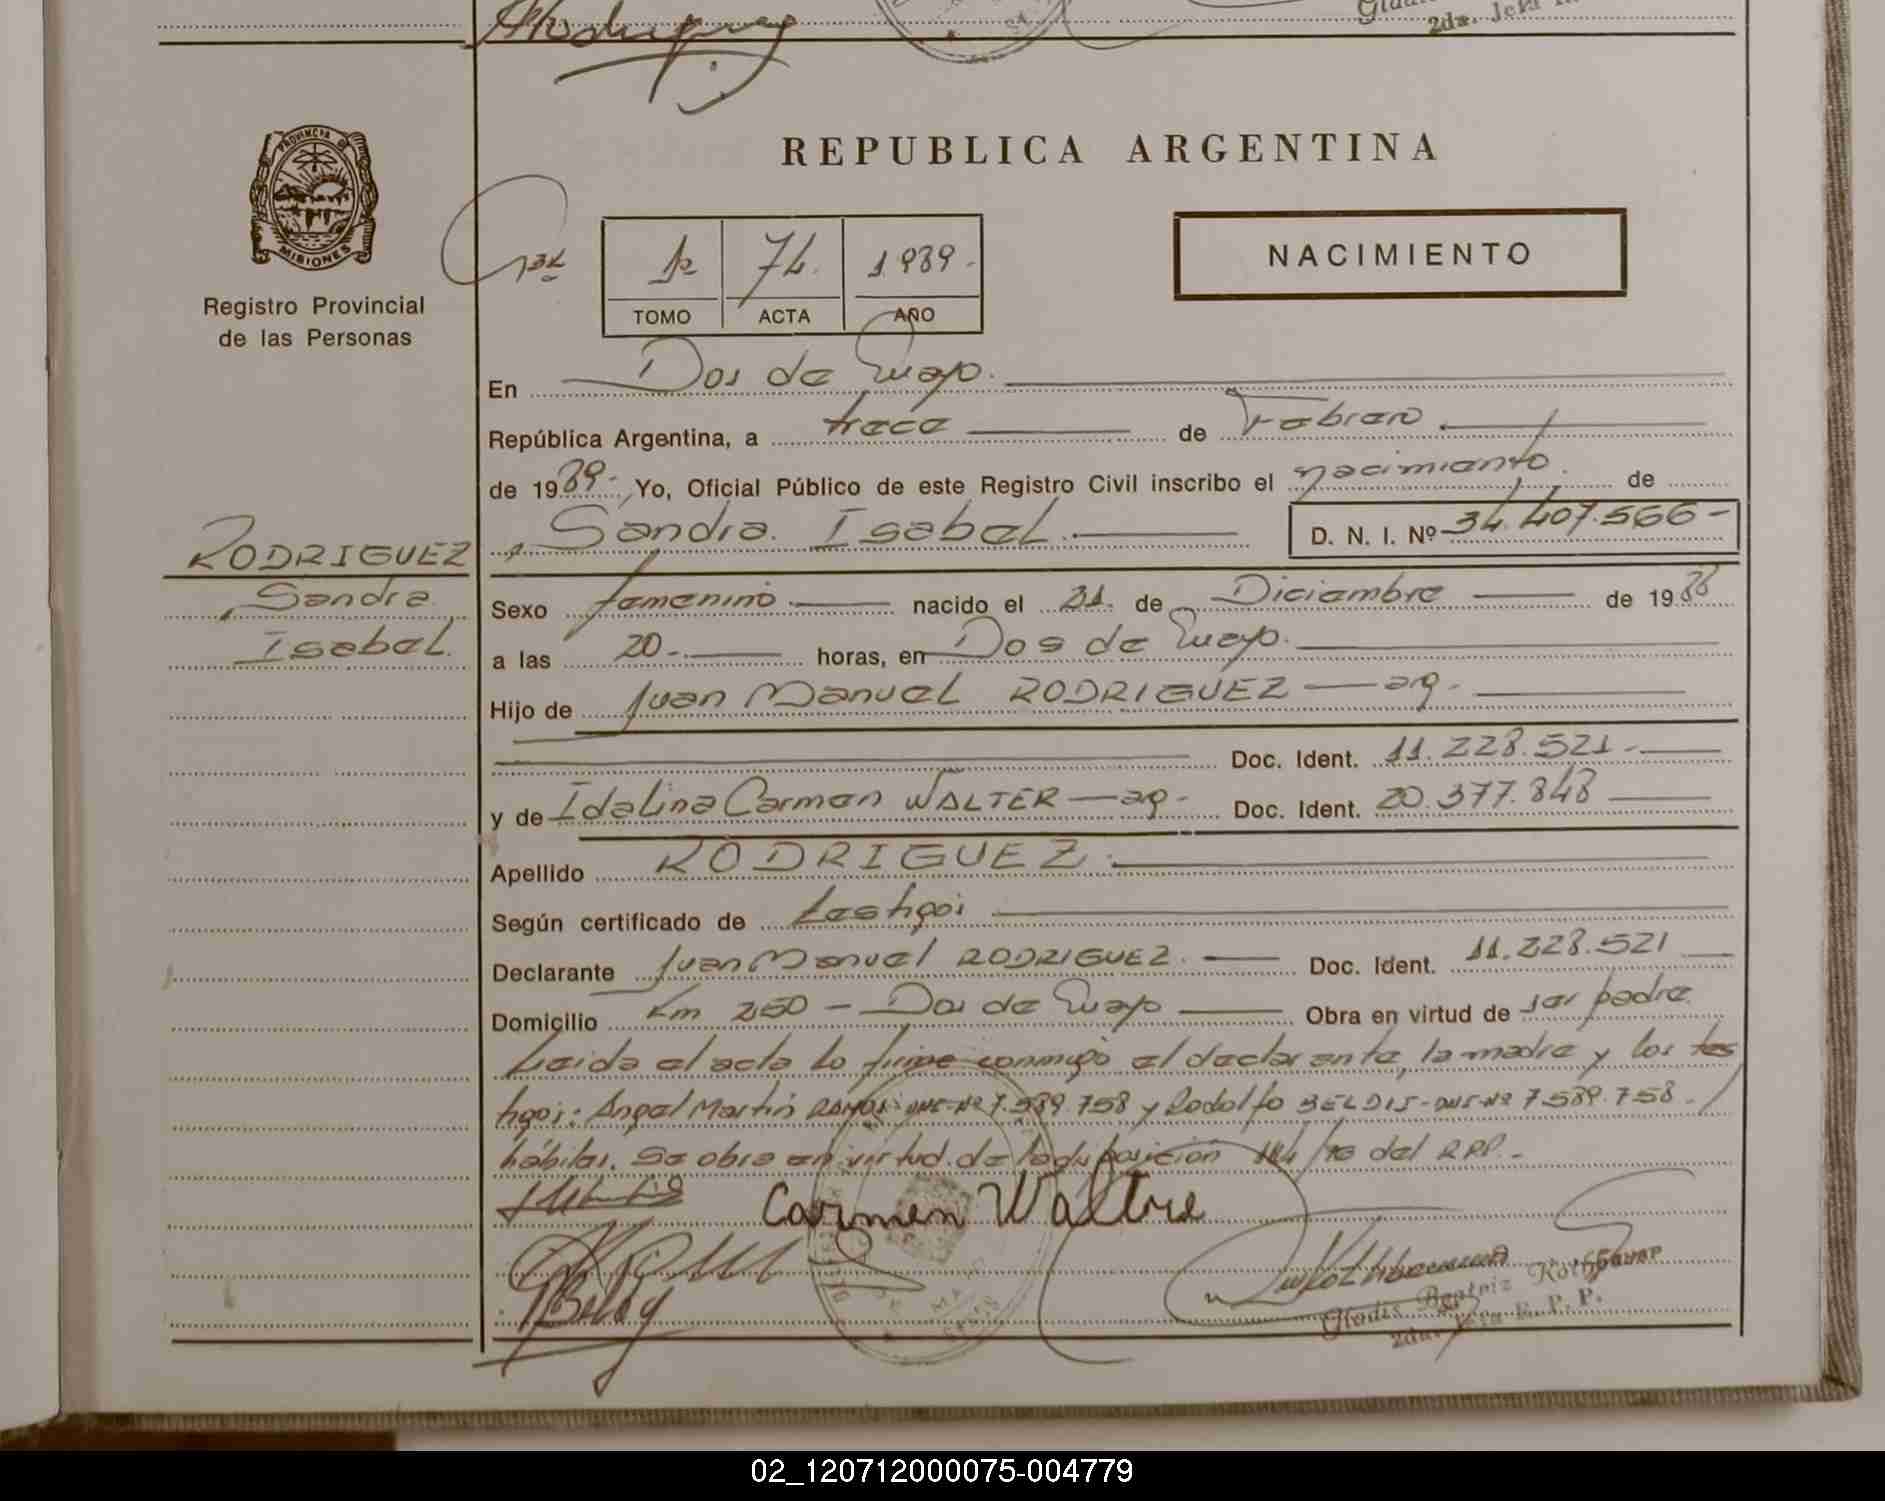 2da. Jefa
PROVINCIA
MISIONES
Registro Provincial
de las Personas
REPUBLICA ARGENTINA
NACIMIENTO
1º 74. 1.989.-
TOMO ACTA AÑO
En Dos de Mayo.
República Argentina, a trece de Febrero
de 1989.- Yo, Oficial Público de este Registro Civil inscribo el nacimiento. de
Sandra Isabel D. N. I. Nº 34.407.566-
RODRIGUEZ
Sandra
Isabel.
Sexo femenino nacido el 31. de Diciembre de 1988
a las 20.- horas, en Dos de Mayo.
Hijo de Juan Manuel RODRIGUEZ — arg.
Doc. Ident. 11.228.521.-
y de Idalina Carmen WALTER — arg.- Doc. Ident. 20.377.848
Apellido RODRIGUEZ.
Según certificado de testigos
Declarante Juan Manuel RODRIGUEZ. Doc. Ident. 11.228.521
Domicilio Km 250 - Dos de Mayo Obra en virtud de ser padre
Leida el acta lo firma conmigo el declarante, la madre y los tes
tigos: Angel Martin RAMOS-DNI-Nº 7.589.758 y Rodolfo BELDIS-DNI-Nº 7.589.758.-
hábiles. Se obra en virtud de la disposición 114/76 del RPP.-
Carmen Waltre
Gladis Beatriz
2da. Jefa R. P. P.
02_120712000075-004779